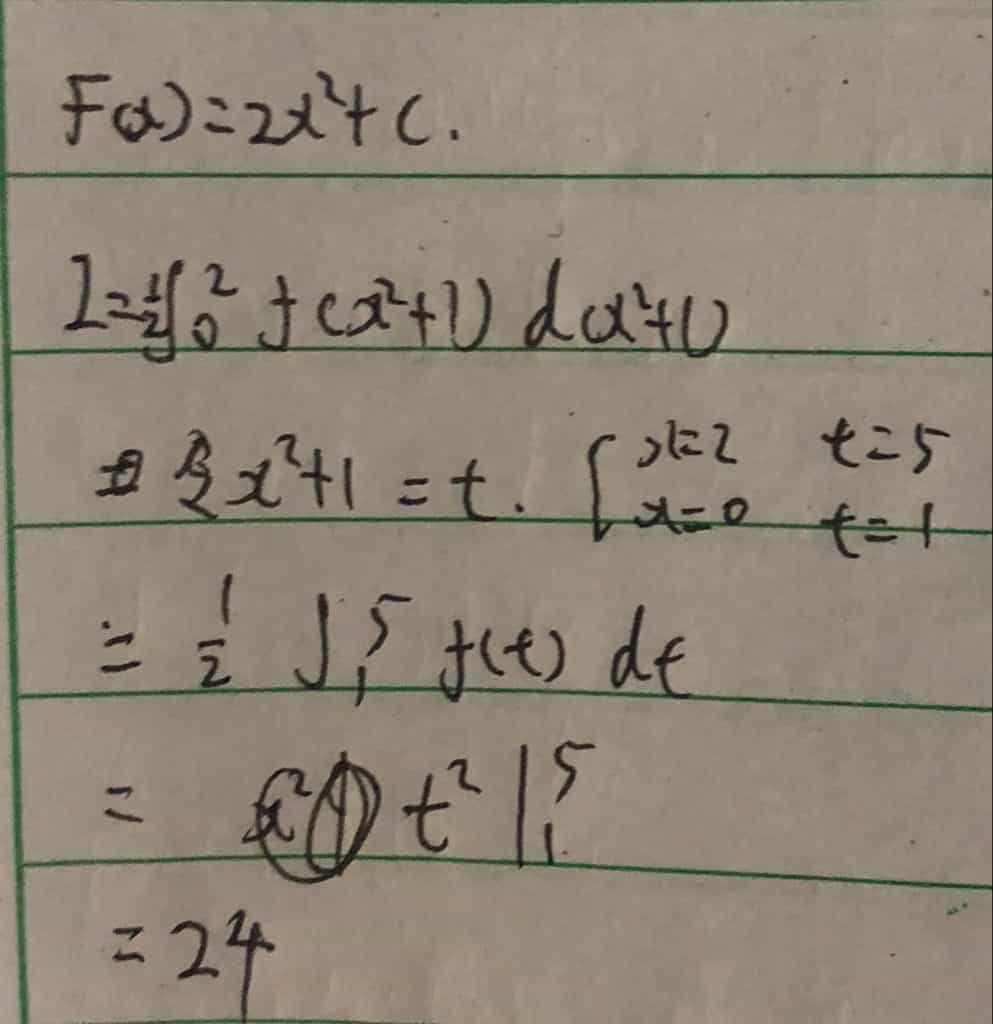 F(x)=2x²+C.
I=½∫₀² f(x²+1) d(x²+1)
令x²+1=t. { x=2 t=5
x=0 t=1
= ½ ∫₁⁵ f(t) dt
= t² |₁⁵
=24